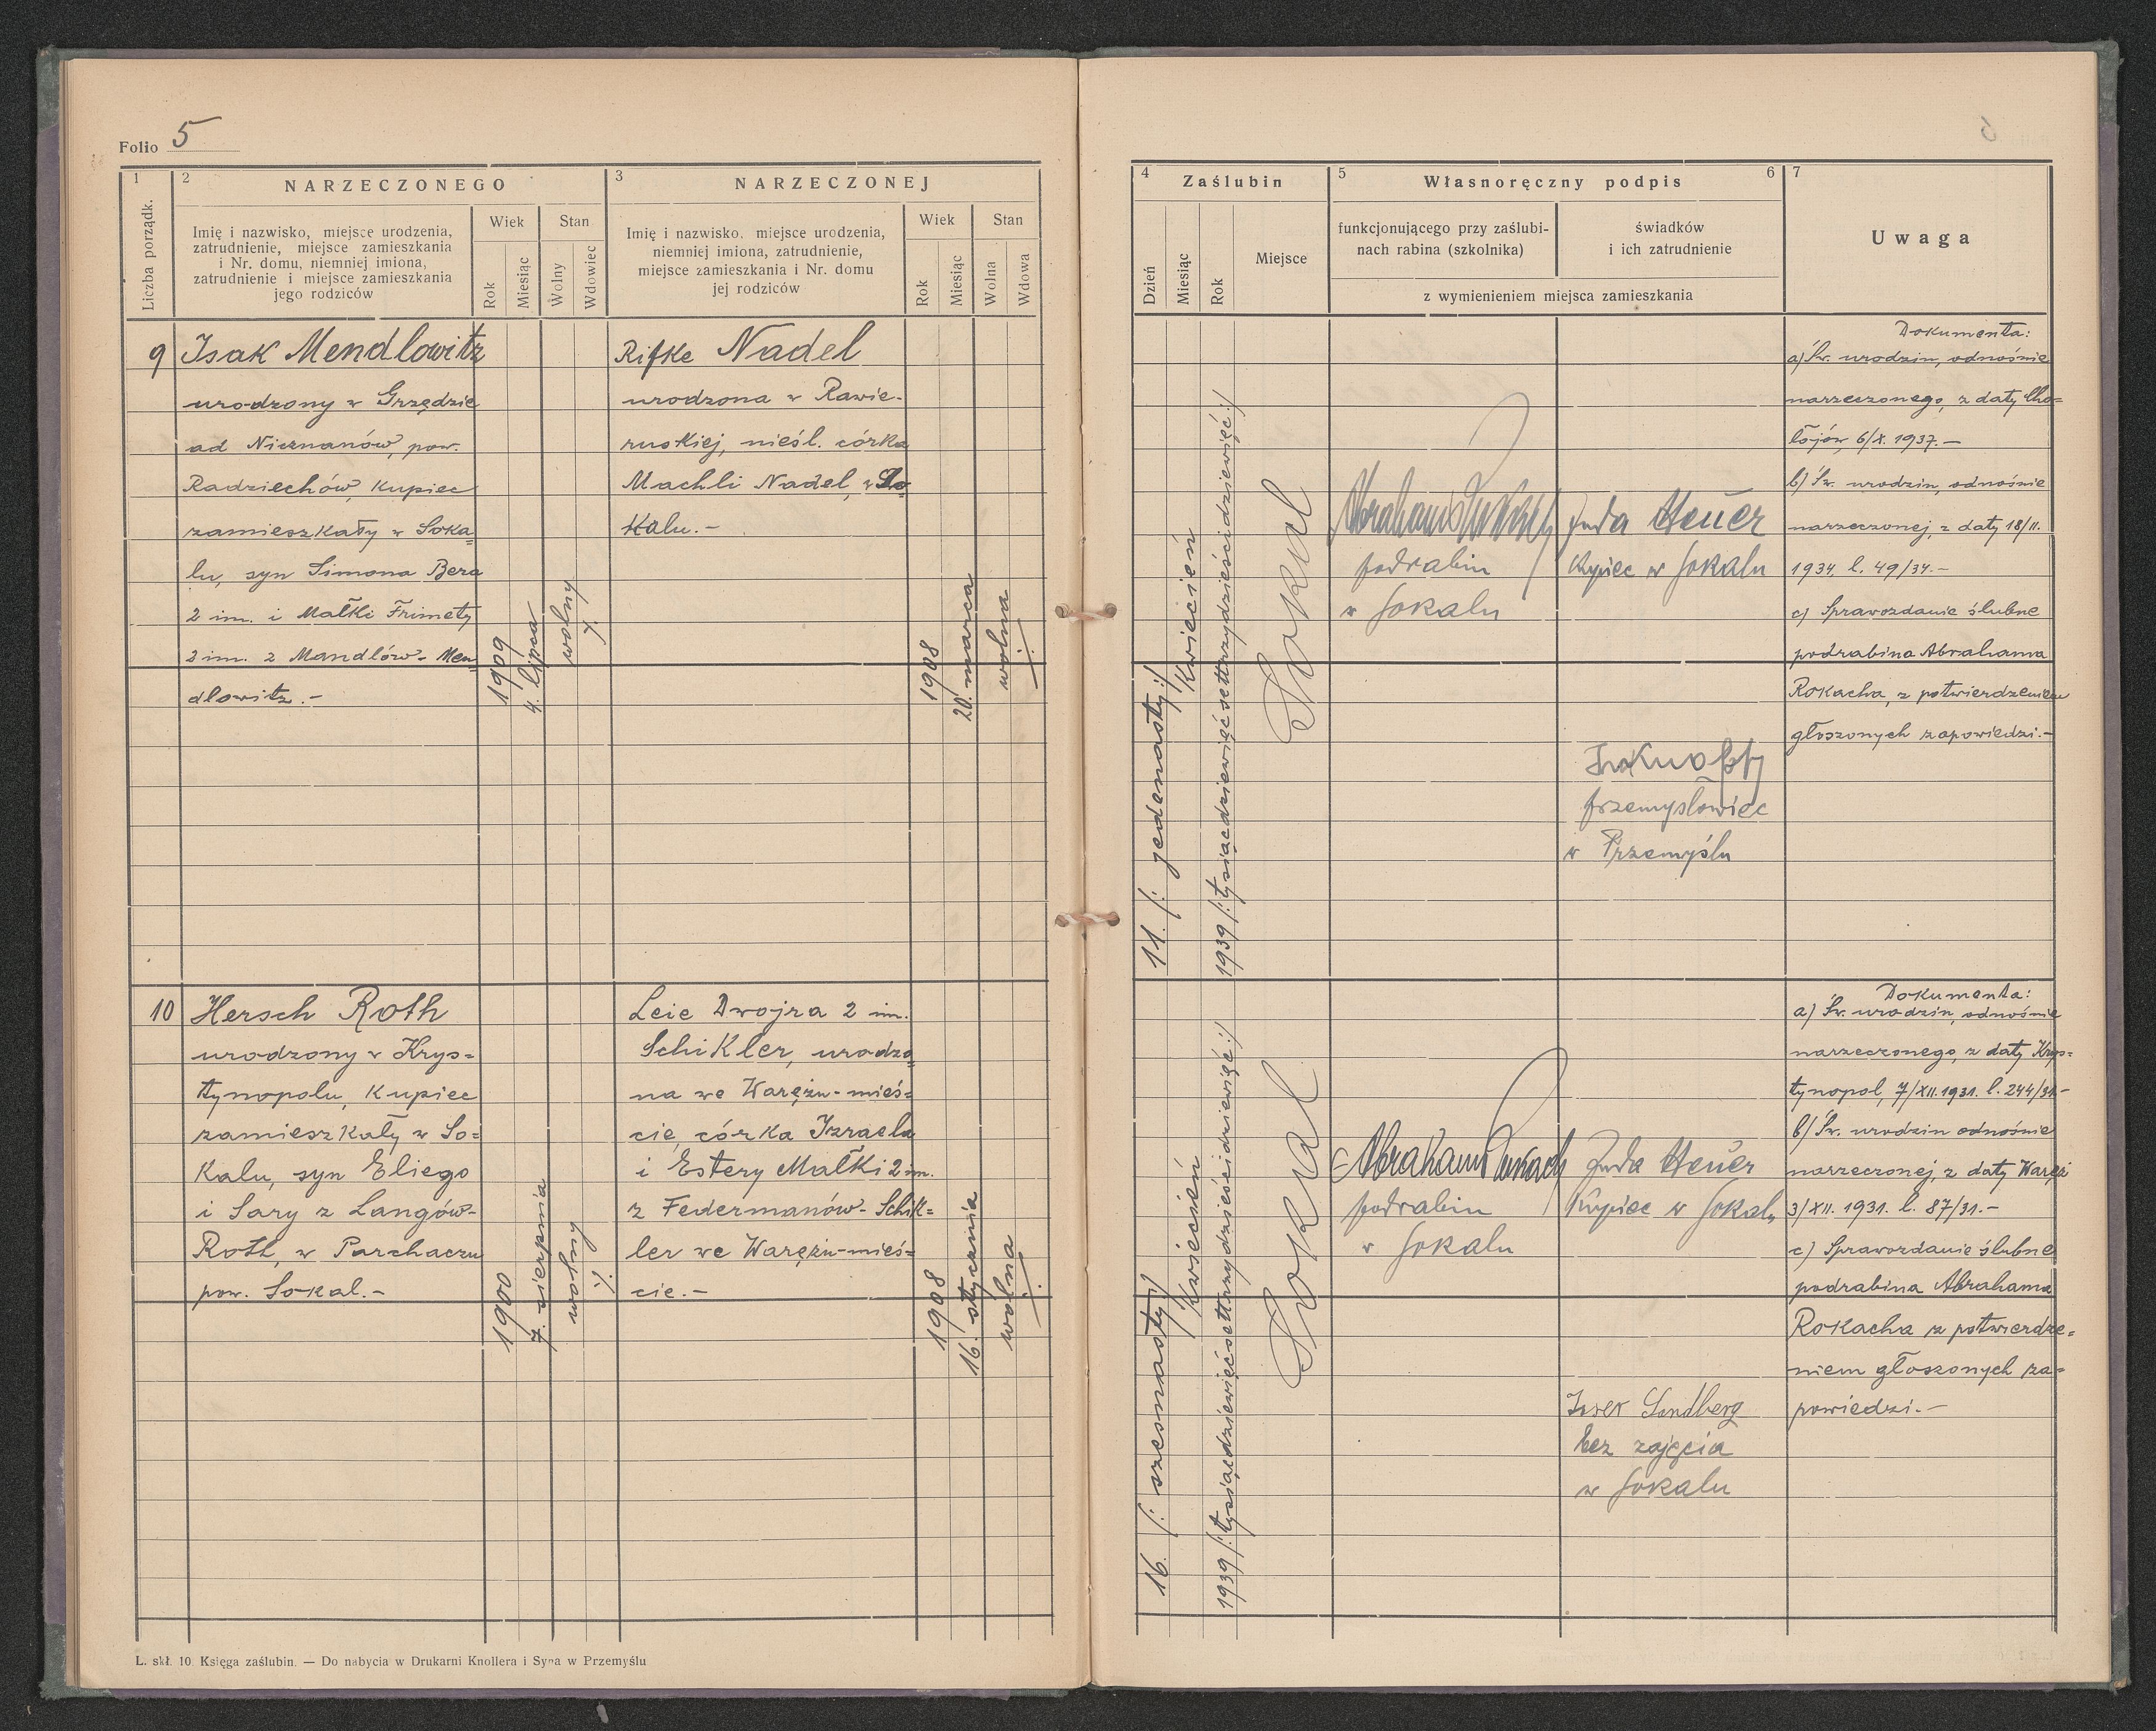 Folio 5
1
2
NARZECZONEGO
3
NARZECZONEJ
Liczba porządk.
Imię i nazwisko, miejsce urodzenia,
zatrudnienie, miejsce zamieszkania
i Nr. domu, niemniej imiona,
zatrudnienie i miejsce zamieszkania
jego rodziców
Wiek
Stan
Rok
Miesiąc
Wolny
Wdowiec
Imię i nazwisko, miejsce urodzenia,
niemniej imiona, zatrudnienie,
miejsce zamieszkania i Nr. domu
jej rodziców
Wiek
Stan
Rok
Miesiąc
Wolna
Wdowa
9
Isak Mendlowitz
urodzony w Grzędzie
ad Nieznanów, pow.
Radziechów, kupiec
zamieszkały w Soka=
lu, syn Simona Bera
2 im. i Małki Frimety
2 im. z Mandlów- Men=
dlowitz.-
1909
4. lipca
wolny
Rifke Nadel
urodzona w Rawie-
ruskiej, nieśl. córka
Machli Nadel, w So=
kalu.-
1908
20. marca
wolna
10
Hersch Roth
urodzony w Krys=
tynopolu, kupiec
zamieszkały w So=
kalu, syn Eliego
i Sary z Langów-
Roth, w Parchaczu
pow. Sokal.-
1900
7. sierpnia
wolny
Leie Dwojra 2 im.
Schikler, urodzo
na we Warężu-mieś=
cie, córka Izraela
i Estery Małki 2 im.
z Federmanów- Schik=
ler we Warężu-mieś=
cie.-
1908
16. stycznia
wolna
L. skł. 10. Księga zaślubin. — Do nabycia w Drukarni Knollera i Syna w Przemyślu
4
Zaślubin
5
Własnoręczny podpis
6
7
Dzień
Miesiąc
Rok
Miejsce
funkcjonującego przy zaślubi-
nach rabina (szkolnika)
świadków
i ich zatrudnienie
z wymienieniem miejsca zamieszkania
Uwaga
11. /: jedenasty :/
Kwiecień
1939 /: tysiącdziewięćsettrzydzieścidziewięć :/
Sokal
Abraham
podrabin
w Sokalu
Juda Heuer
Kupiec w Sokalu
przemysłowiec
w Przemyślu
Dokumenta:
a) Św. urodzin, odnośnie
narzeczonego, z daty Cho=
łojów, 6/X. 1937.-
b) Św. urodzin, odnośnie
narzeczonej, z daty 18/II.
1934. l. 49/34.-
c) Sprawozdanie ślubne
podrabina Abrahama
Rokacha, z potwierdzeniem
głoszonych zapowiedzi.-
16. /: szesnasty :/
Kwiecień
1939 /: tysiącdziewięćsettrzydzieścidziewięć :/
Sokal
Abraham Rokach
podrabin
w Sokalu
Juda Heuer
Kupiec w Sokalu
Josek Sandberg
bez zajęcia
w Sokalu
Dokumenta:
a) Św. urodzin, odnośnie
narzeczonego, z daty Krys=
tynopol, 7/XII. 1931. l. 244/31.-
b) Św. urodzin odnośnie
narzeczonej, z daty Waręż
3/XII. 1931. l. 87/31.-
c) Sprawozdanie ślubne
podrabina Abrahama
Rokacha z potwierdze=
niem głoszonych za=
powiedzi.-